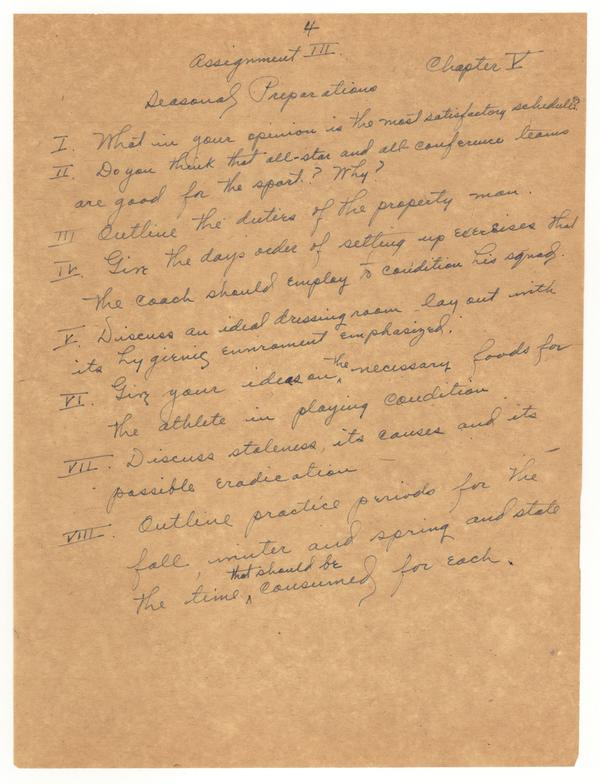 4
Assignment III. Chapter V
Seasonal Preparations
I. What in your opinion is the most satisfactory schedule?
II. Do you think that all-star and all conference teams
are good for the sport? Why?
III Outline the duties of the property man.
IV. Give the days order of setting up exercises that
the coach should employ to condition his squad.
V. Discuss an ideal dressing room lay out with
its hygienic enviroment emphasized.
VI. Give your ideas on the necessary foods for
the athlete in playing condition.
VII. Discuss staleness, its causes and its
possible eradication —
VIII. Outline practice periods for the
fall, winter and spring and state
the time that should be consumed for each.